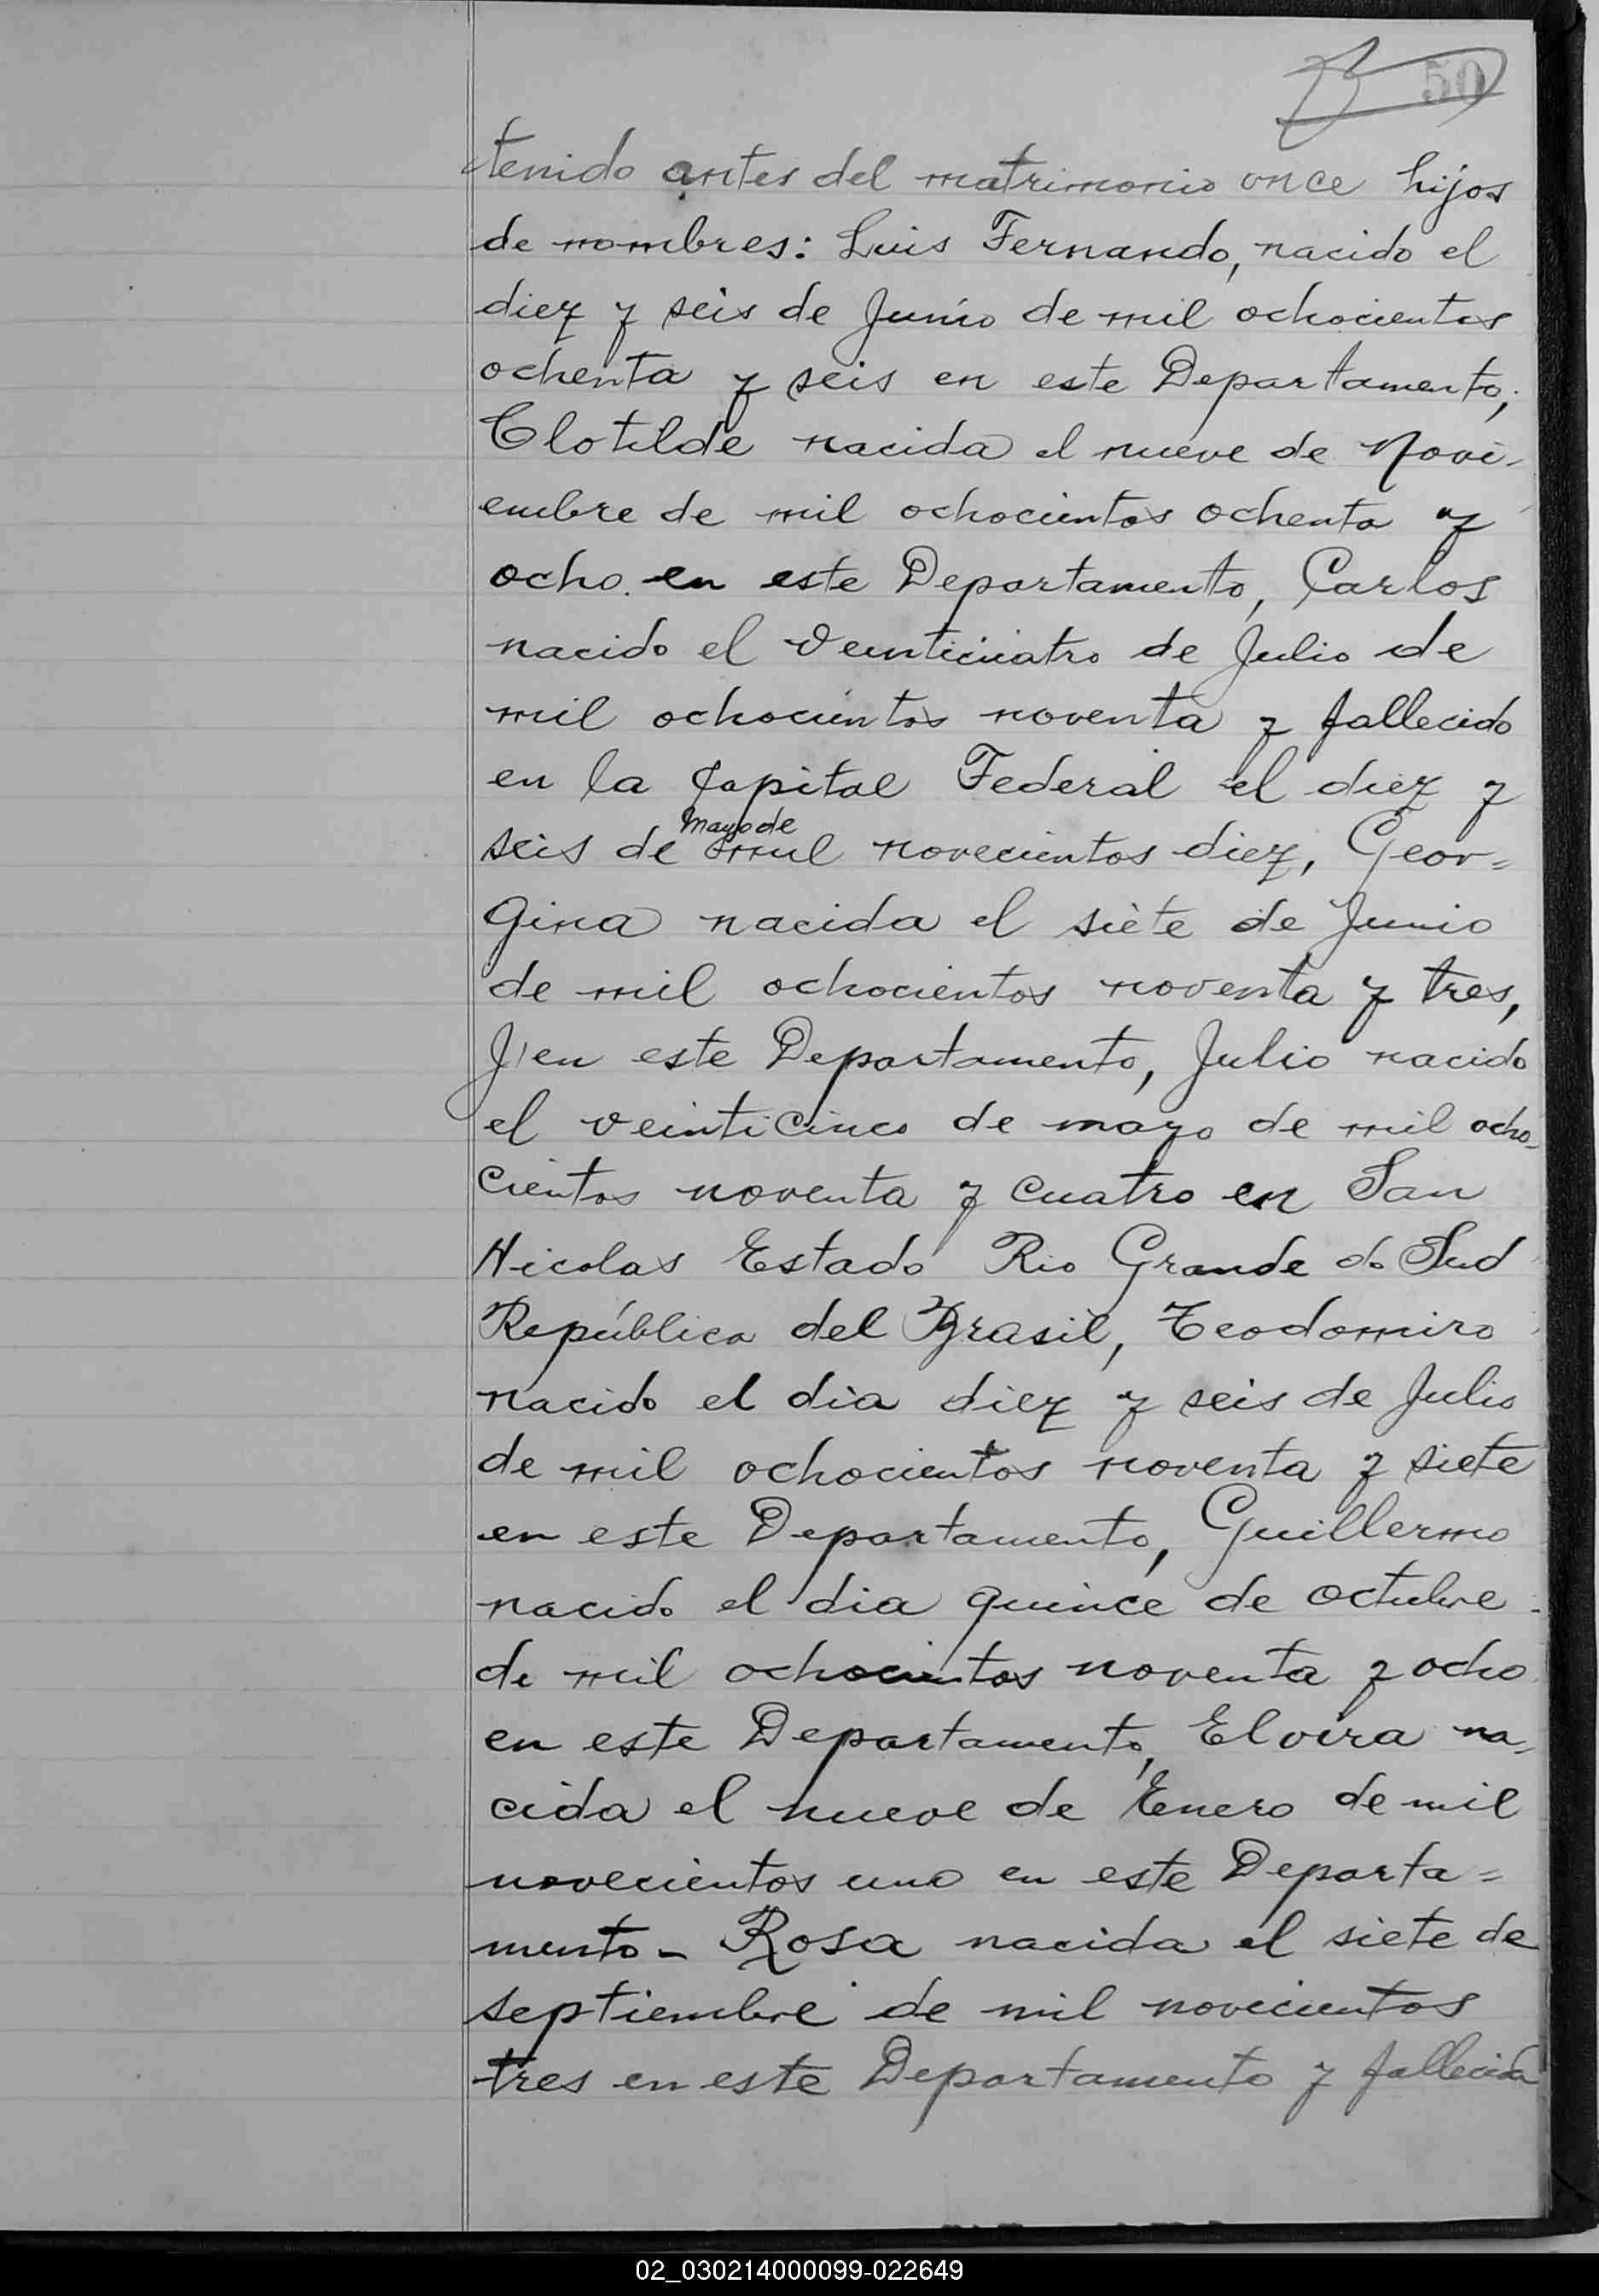 50
tenido antes del matrimonio once hijos
de nombres: Luis Fernando, nacido el
diez y seis de Junio de mil ochocientos
ochenta y seis en este Departamento,
Clotilde nacida el nueve de Novi-
embre de mil ochocientos ochenta y
ocho en este Departamento, Carlos
nacido el Veinticuatro de Julio de
mil ochocientos noventa y fallecido
en la Capital Federal el diez y
Mayo de
seis de mil novecientos diez, Geor=
gina nacida el siete de Junio
de mil ochocientos noventa y tres,
en este Departamento, Julio nacido
el veinticinco de mayo de mil ocho-
cientos noventa y cuatro en San
Nicolas Estado Rio Grande do Sud
República del Brasil, Teodomiro
nacido el dia diez y seis de Julio
de mil ochocientos noventa y siete
en este Departamento, Guillermo
nacido el dia quince de octubre
de mil ochocientos noventa y ocho
en este Departamento, Elvira na-
cida el nueve de Enero de mil
novecientos uno en este Departa=
mento - Rosa nacida el siete de
septiembre de mil novecientos
tres en este Departamento y fallecida
02_030214000099-022649